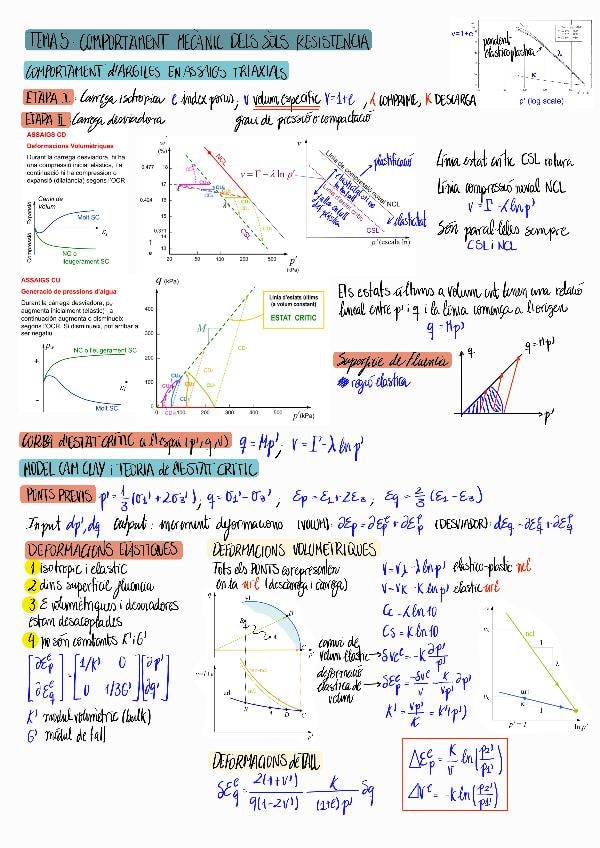 TEMA 5 - COMPORTAMENT MECÀNIC DELS SÒLS RESISTENCIA
v=1+e
pendent elastoplastica
λ
κ
p' (log scale)
COMPORTAMENT d'ARGILES EN ASSAIGS TRIAXIALS
ETAPA I. Càrrega isotròpica e índex porus, v volum específic v=1+e, λ COMPRIME, K DESCARGA
ETAPA II Càrrega desviadora grau de pressió o compactació
ASSAIGS CD
Deformacions Volumètriques
Durant la càrrega desviadora, hi ha
una compressió inicial elàstica, i a
continuació hi ha compressió o
expansió (dilatància) segons l'OCR
Canvi de
Volum
Molt SC
NC o
lleugerament SC
Compressió
Expansió
NCL
CSL
v = Γ − λ ln p'
p' (kPa)
plastificació
Línia de compressió noval NCL
v elasticitat
CSL
p' (escala ln)
Línia estat crític CSL rutura
Línia compressió noval NCL
v = Γ - λ ln p'
Són paral·leles sempre
CSL i NCL
ASSAIGS CU
Generació de pressions d'aigua
Durant la càrrega desviadora, pw
augmenta inicialment (elàstic) i a
continuació augmenta o disminueix
segons l'OCR. Si disminueix, pot arribar a
ser negatiu.
NC o lleugerament SC
Molt SC
q (kPa)
M
Línia d'estats últims
(a volum constant)
ESTAT CRÍTIC
p' (kPa)
Els estats últims a volum cnt tenen una relació
lineal entre p' i q i la línia comença a l'origen
q = Mp'
Superfície de Fluencia
regió elàstica
q
q = Mp'
p'
CORBA d'ESTAT CRÍTIC a l'espai (p', q, v) q = Mp', v = Γ - λ ln p'
MODEL CAM CLAY i TEORIA de l'ESTAT CRÍTIC
PUNTS PREVIS p' = 1/3 (σ1' + 2σ3'), q = σ1' - σ3', εp = ε1 + 2ε3, εq = 2/3 (ε1 - ε3)
Input dp', dq output: increment deformacions (VOLUM): ∂εp = ∂εp^e + ∂εp^p (DESVIADOR): dεq = ∂εq^e + ∂εq^p
DEFORMACIONS ELÀSTIQUES
1 isotropic i elastic
2 dins superficie fluencia
3 ε volumètriques i desviadores
estan desacoplades
4 no són constants K' i G'
[∂εp^e ∂εq^e] = [1/K' 0 0 1/3G'] [∂p' ∂q']
K' mòdul volumètric (bulk)
G' mòdul de tall
DEFORMACIONS VOLUMÈTRIQUES
Tots els PUNTS es representen
en la url (descarrega i carrega)
canvi de
volum elastic → δv^e = -K ∂p'/p'
deformació
elastica de
volum → δεp^e = -δv^e/v = K/vp' ∂p'
K' = vp'/K = K'(p')
v = vλ - λ ln p' elastico-plastic ncl
v = vK - K ln p' elastic url
Cc = λ ln 10
Cs = K ln 10
ncl
url
p' = 1
ln p'
DEFORMACIONS de TALL
δεq^e = 2(1+v')/9(1-2v') K/(1+e)p' δq
Δεp^e = K/v ln(p2'/p1')
Δv^e = -K ln(p2'/p1')